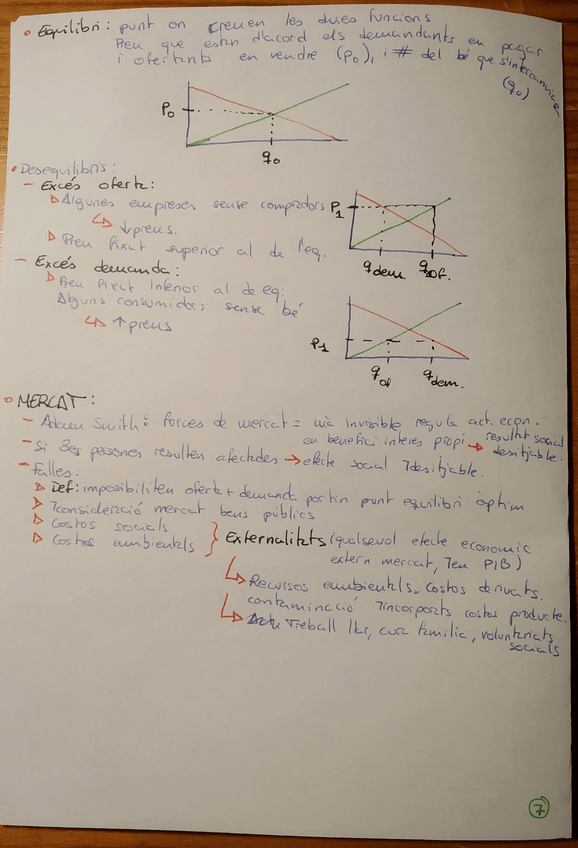 • Equilibri: punt on creuen les dues funcions
Preu que estan d'acord els demandants en pagar
i ofertants en vendre (P₀), i # del bé que s'intercanvien
(q₀)
P₀
q₀
• Desequilibris:
– Excés oferta:
▷ Algunes empreses sense compradors
↳ ↓preus.
▷ Preu fixat superior al de l'eq.
P₁
qdem. qof.
– Excés demanda:
▷ Preu fixat inferior al de eq:
Alguns consumidors sense bé
↳ ↑preus
P₁
qof qdem.
• MERCAT:
– Adam Smith: forces de mercat = mà invisible regula act. econ.
en benefici interès propi → resultat social
desitjable.
– Si 3es persones resulten afectades → efecte social ┐desitjable.
– Falles:
▷ Def: imposibiliten oferta + demanda portin punt equilibri òptim
▷ ┐consideració mercat bens públics
▷ Costos socials
▷ Costos ambientals } Externalitats (qualsevol efecte economic
extern mercat, ┐en PIB)
↳ Recursos ambientals. Costos derivats.
contaminació ┐incorporats costos producte.
↳ Treball llar, cura família, voluntariats
socials
7